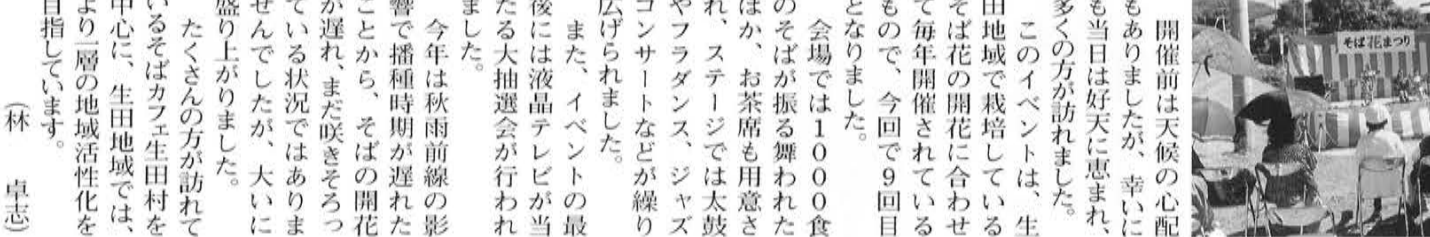 そば花まつり
開催前は天候の心配
もありましたが、幸いに
も当日は好天に恵まれ、
多くの方が訪れました。
このイベントは、生
田地域で栽培している
そば花の開花に合わせ
て毎年開催されている
もので、今回で9回目
となりました。
会場では1000食
のそばが振る舞われた
ほか、お茶席も用意さ
れ、ステージでは太鼓
やフラダンス、ジャズ
コンサートなどが繰り
広げられました。
また、イベントの最
後には液晶テレビが当
たる大抽選会が行われ
ました。
今年は秋雨前線の影
響で播種時期が遅れた
ことから、そばの開花
が遅れ、まだ咲きそろっ
ている状況ではありま
せんでしたが、大いに
盛り上がりました。
たくさんの方が訪れて
いるそばカフェ生田村を
中心に、生田地域では、
より一層の地域活性化を
目指しています。
(林 卓志)